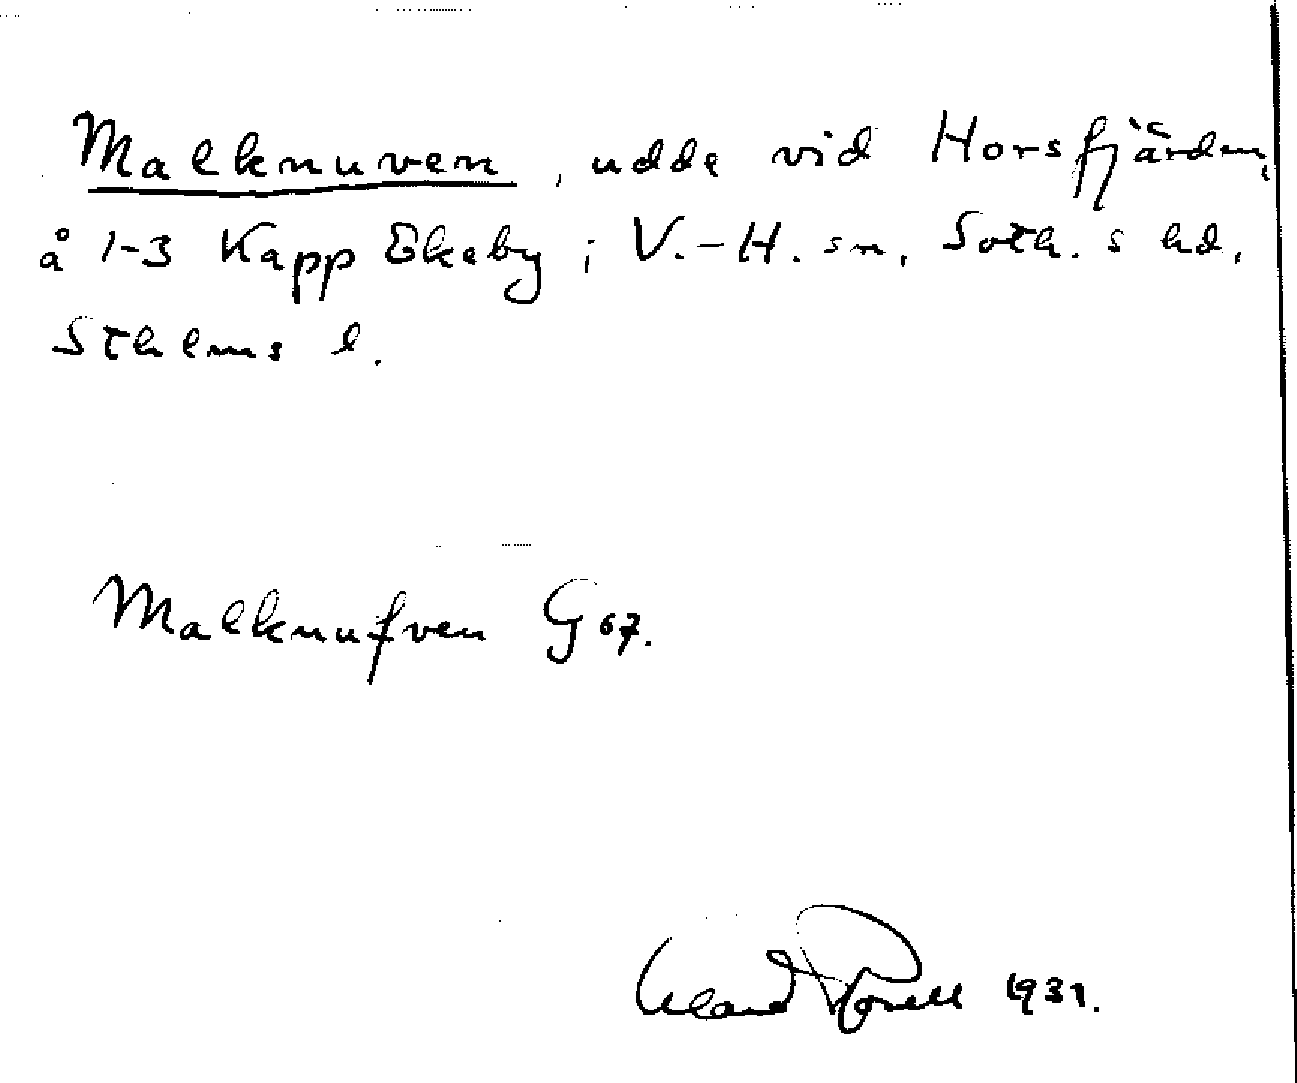 Malknuven, udde vid Horsfjärden,
å 1-3 Kapp Ekeby i V.-H. sn, Soth.s hd,
Sthlms l.
Malknufven G 67.
1931.